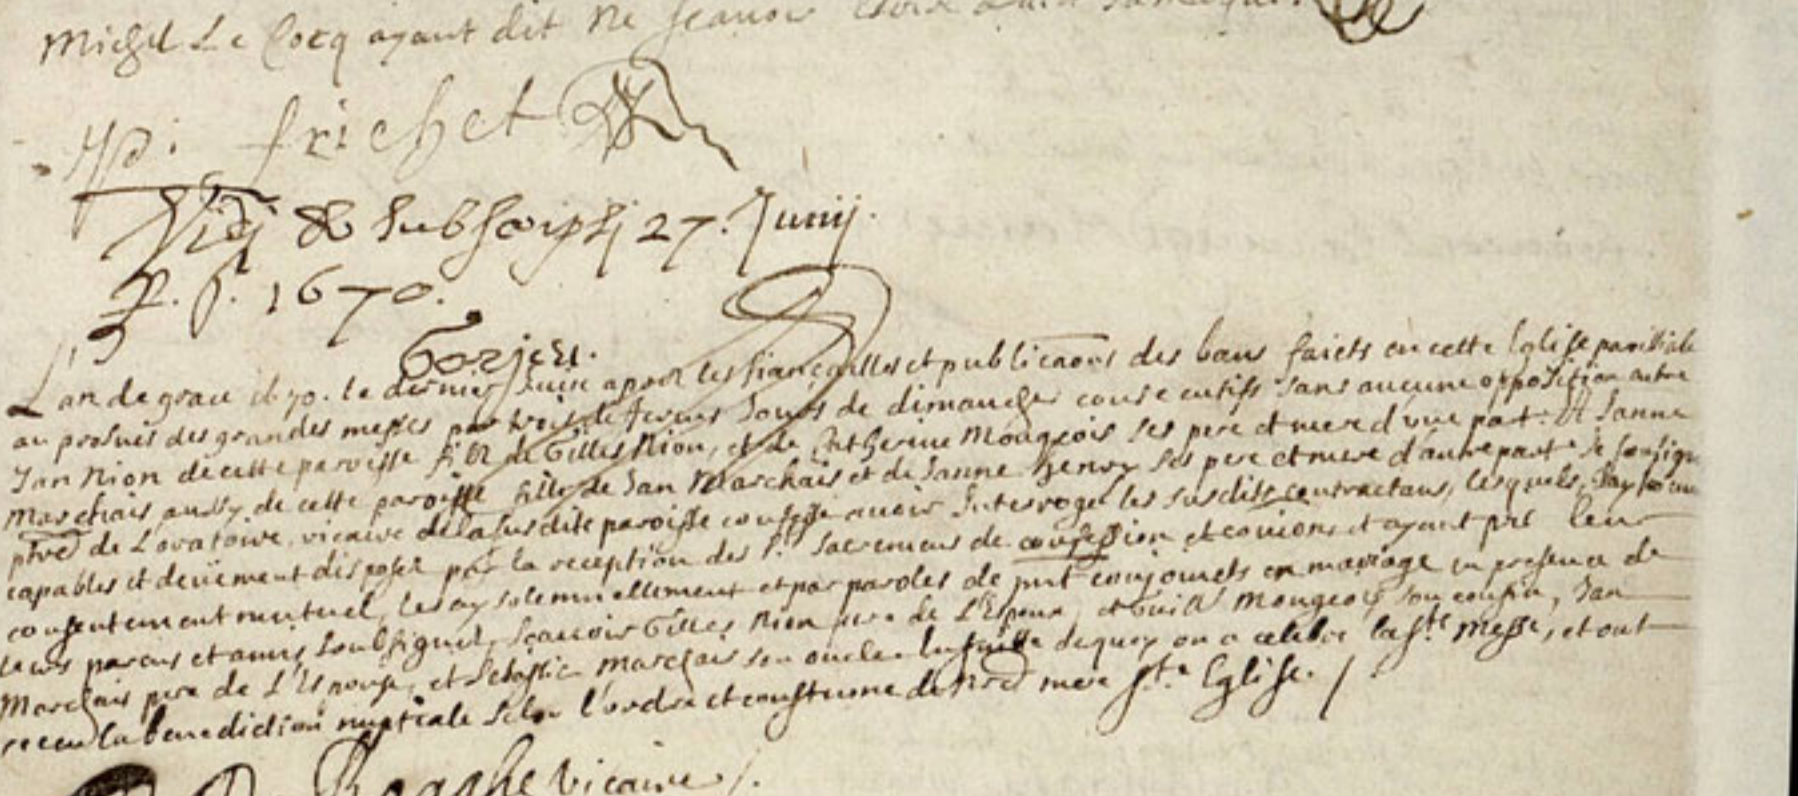 Michel Le Cocq ayant dit ne scauoir
frichet
Vidj & Subscripsj 27. Junij.
1670.
L'an de grace 1670. le dernier apres les fiançailles et publicaons des bans faicts en cette Eglise paroissiale
au prosnes des grandes messes par trois de dimanches consecutifs sans aucune opposition entre
Jan Nion de cette paroisse fils de Gilles Nion, et de Catherine Mougeois ses pere et mere d'une part. Et Janne
Marchais aussy de cette paroisse fille de Jan Marchais et de Janne Henry ses pere et mere d'autre part Je soussigne
ptre de L'oratoire, vicaire de la susdite paroisse confesse auoir Interrogé les susdits contractans, lesquels J'ay
capables et deüement disposez par la reception des Sts Sacremens de confession et et ayant pris leur
consentement mutuel, les ay solemnellement et par paroles de pnt conjoincts en mariage en presence de
leurs parens et amis soubsignez, scauoir Gilles Nion pere de L'Epoux, et Guill Mougeois son cousin, Jan
Marchais pere de L'Espouse, et son oncle. En suitte de quoy on a celebré la Ste Messe, et ont
receu la benediction nuptiale selon l'ordre et coustume de nre mere Ste Eglise. /
vicaire /.